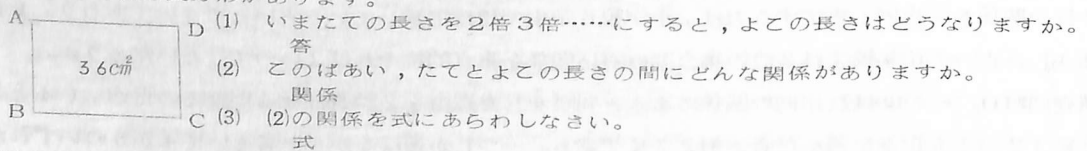 A
D (1) いまたての長さを2倍3倍……にすると，よこの長さはどうなりますか。
答
36c㎡
(2) このばあい，たてとよこの長さの間にどんな関係がありますか。
関係
B
C (3) (2)の関係を式にあらわしなさい。
式